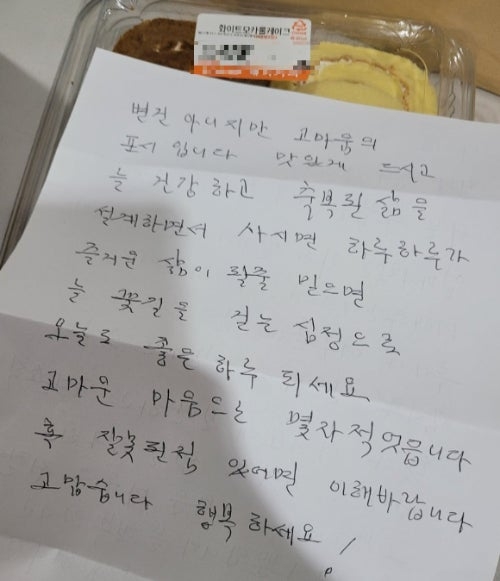 화이트모카롤케이크
별건 아니지만 고마움의
표시 입니다 맛있게 드시고
늘 건강 하고 축복된 삶을
설계하면서 사시면 하루하루가
즐거운 삶이 될줄 믿으면
늘 꽃길을 걷는 심정으로
오늘도 좋은 하루 되세요
고마운 마음으는 몇자 적엇읍니다
혹 잘못된점 잇어면 이해바랍니다
고맙습니다 행복 하세요!